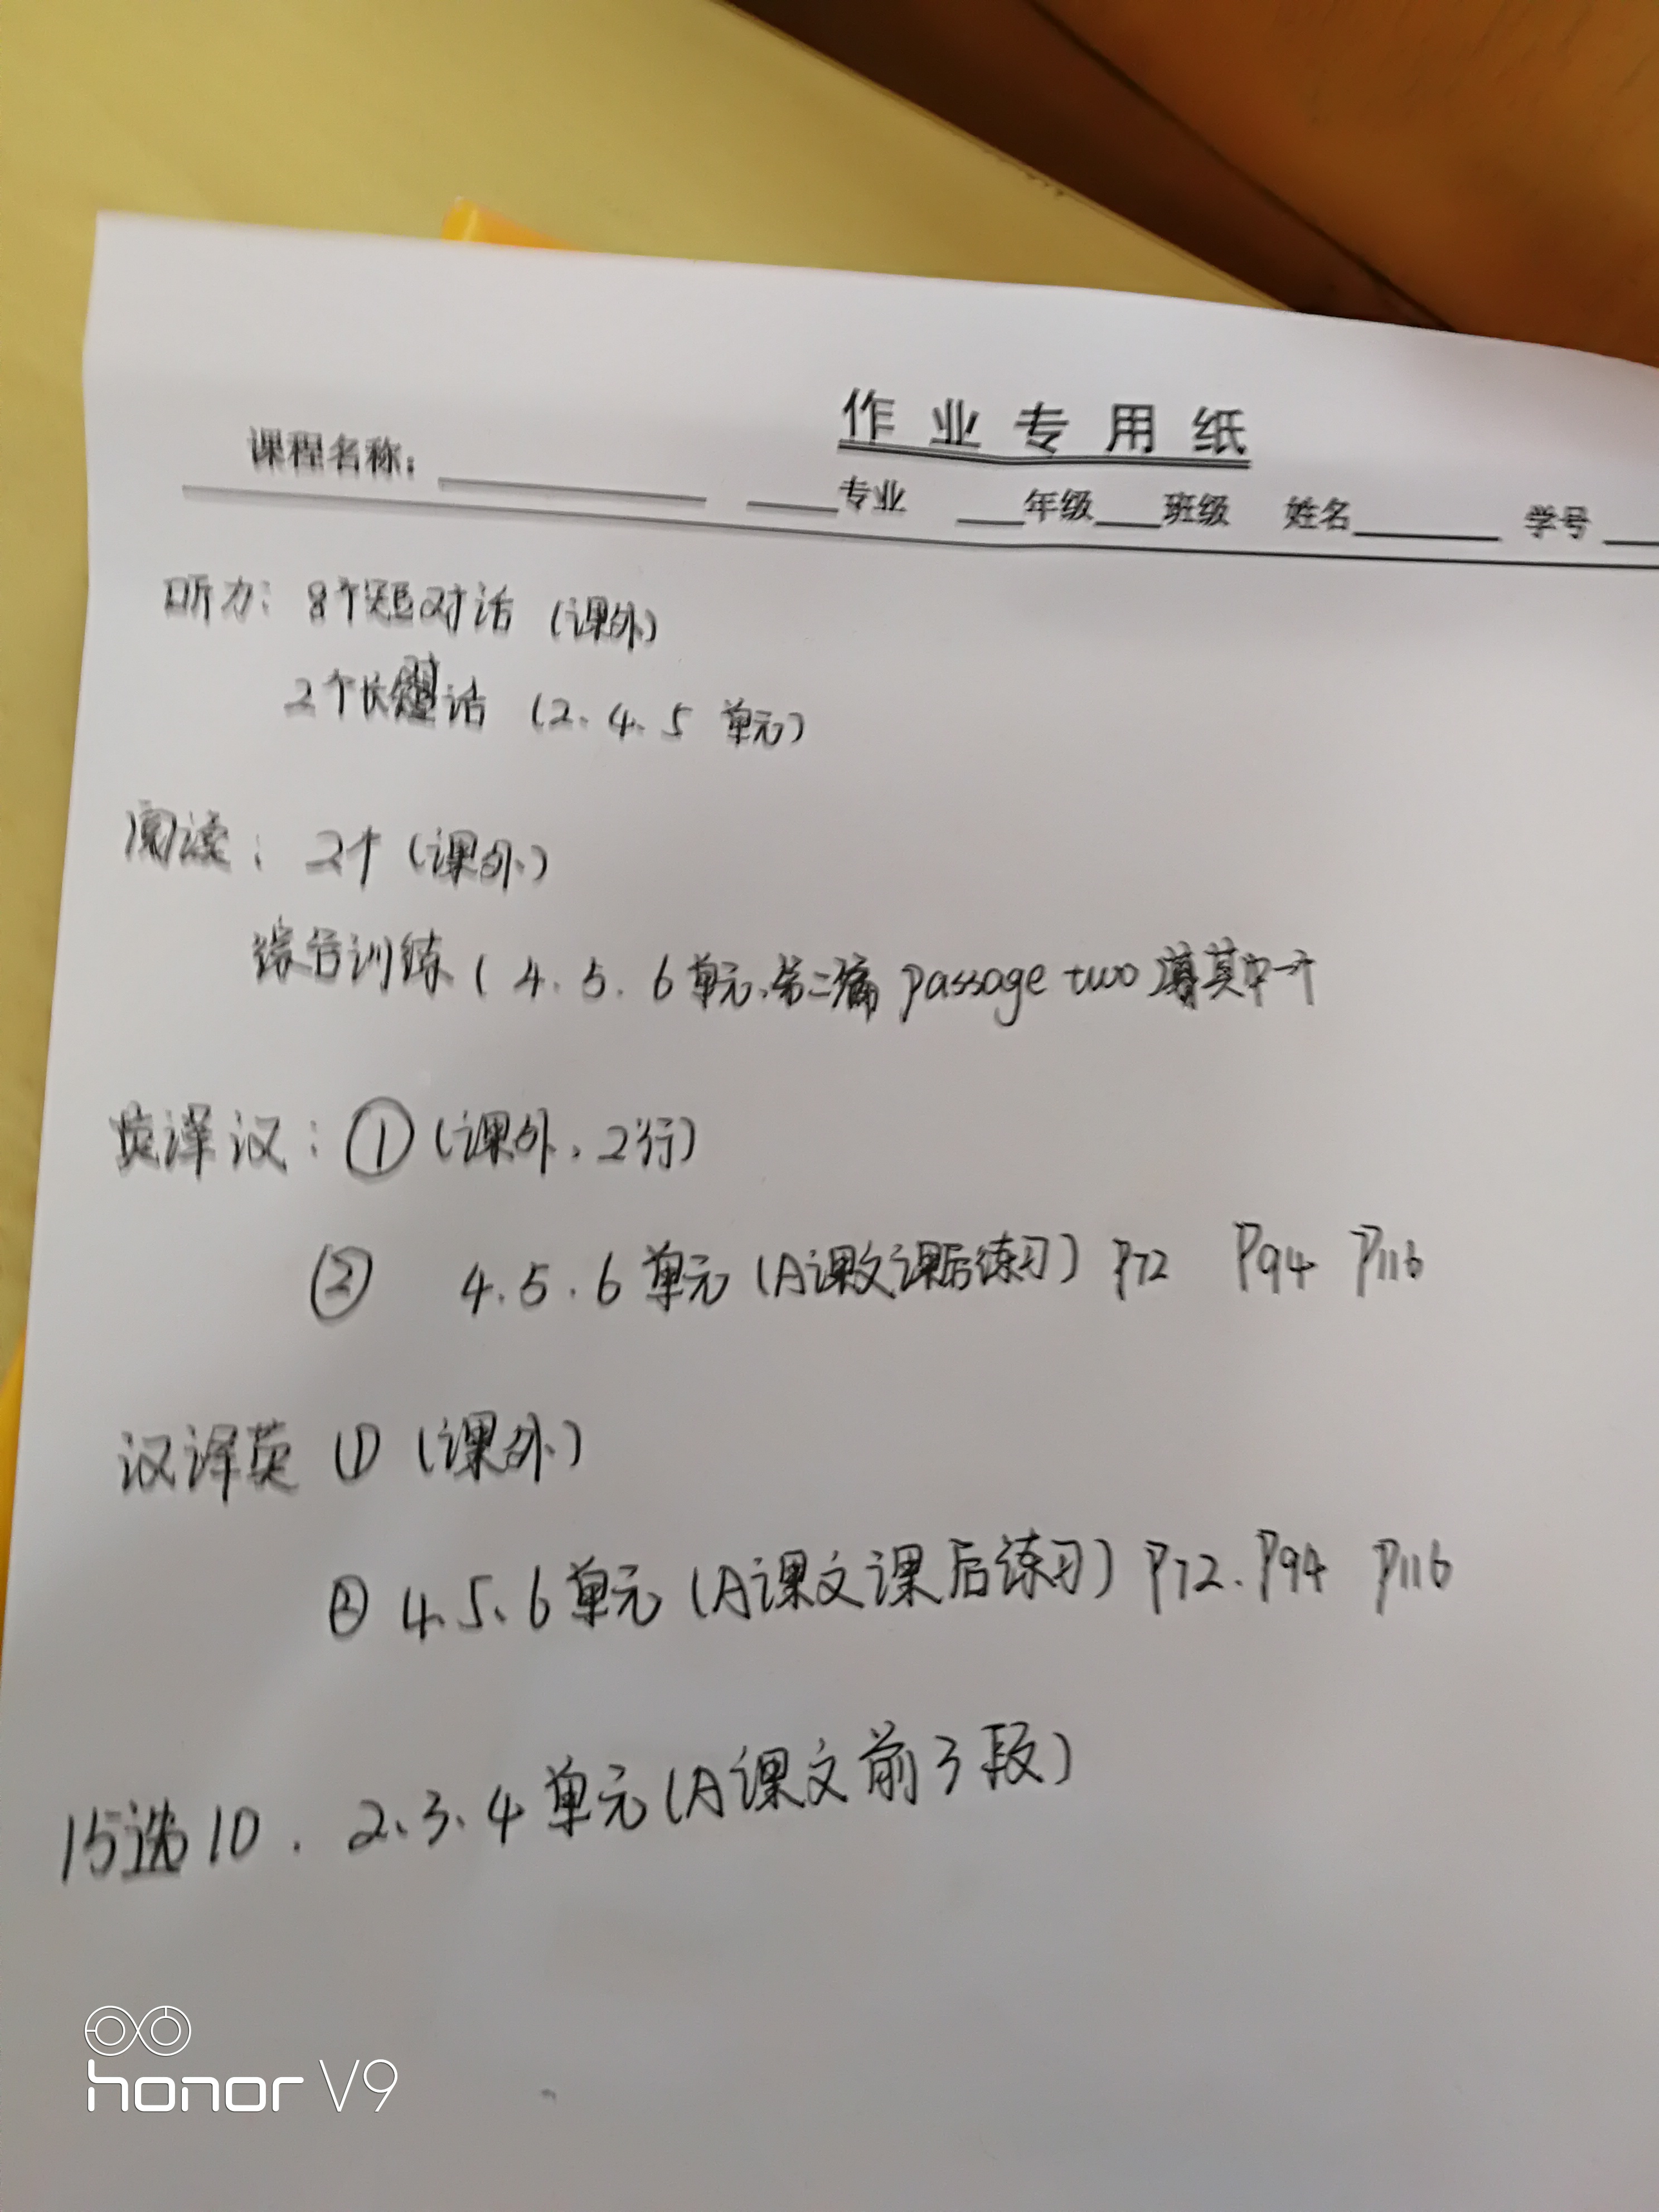 作业专用纸
课程名称: 专业 年级 班级 姓名 学号
听力: 8个短对话 (课外)
2个长对话 (2、4、5 单元)
阅读: 2个 (课外)
综合训练 ( 4、5、6单元、第二篇 passage two 其中一个
英译汉: ① (课外, 2行)
② 4.5.6 单元 (A课文课后练习) P72 P94 P116
汉译英 ① (课外)
② 4、5、6 单元 (A课文课后练习) P72、P94 P116
15选10. 2、3、4 单元 (A课文前3段)
honor V9